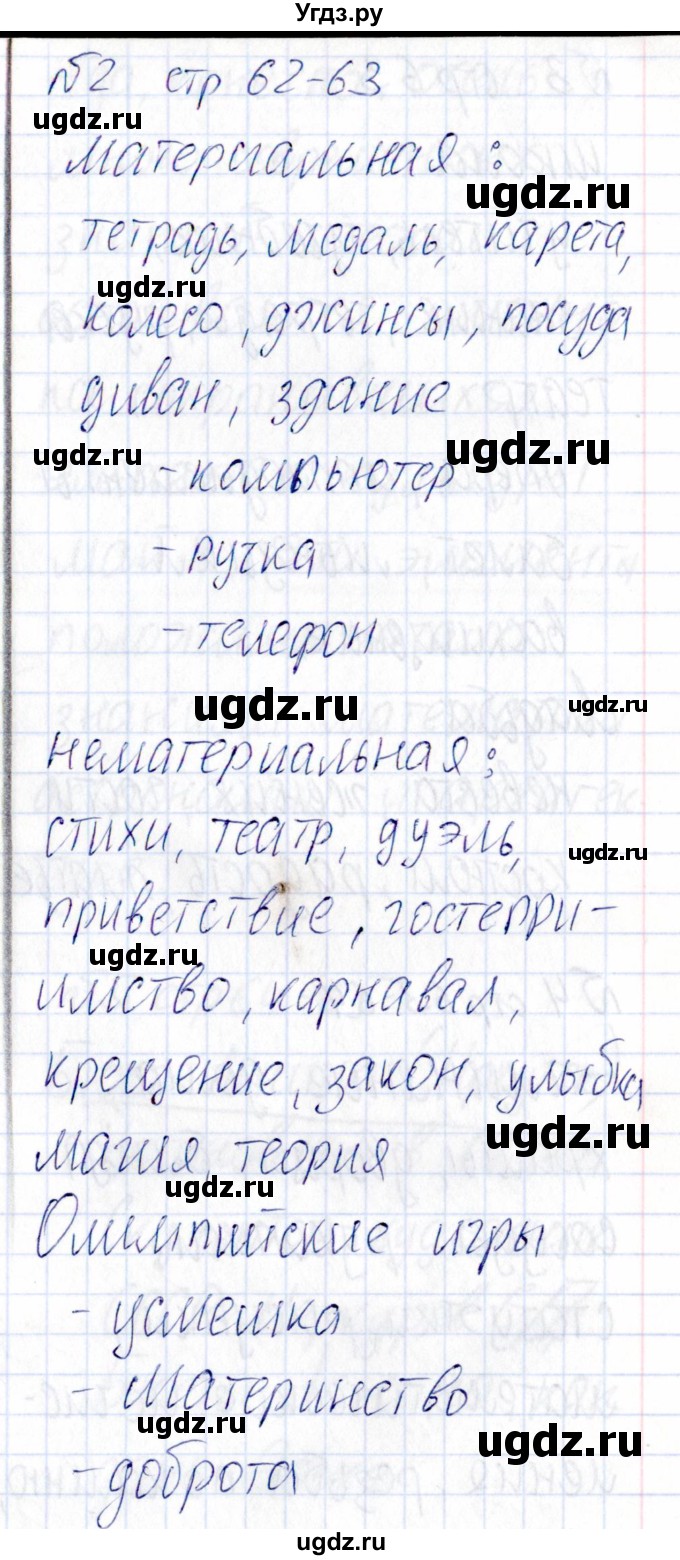 Угдз.ру
№2 стр 62-63
ugdz.ru
материальная:
ugdz.ru
тетрадь, медаль, карета,
ugdz.ru
колесо, джинсы, посуда
диван, здание
ugdz.ru
ugdz.ru
- компьютер
- ручка
- телефон
ugdz.ru
ugdz.ru
нематериальная:
стихи, театр, дуэль,
ugdz.ru
приветствие, гостепри-
ugdz.ru
имство, карнавал,
крещение, закон, улыбка
ugdz.ru
магия, теория
ugdz.ru
Олимпийские игры
- усмешка
- материнство
ugdz.ru
ugdz.ru
- доброта
ugdz.ru